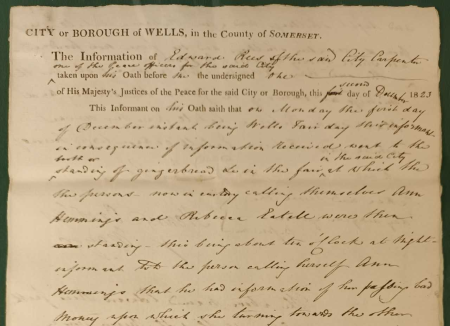 CITY or BOROUGH of WELLS, in the County of SOMERSET.
The Information of Edward Rees of the said City Carpenter
one of the Peace officers for the said City
taken upon his Oath before the undersigned One
second
of His Majesty's Justices of the Peace for the said City or Borough, this day of December 1823
This Informant on his Oath saith that on Monday the first day
of December instant being Wells Fair day this informant
in consequence of information received went to the
in the said City
standing of gingerbread &c in the fair at which the
the persons now in custody calling themselves Ann
Hemmings and Rebecca were then
standing - this being about ten o'Clock at Night -
informant told the person calling herself Ann
Hemmings that he had information of her passing bad
Money upon which she turning towards the other